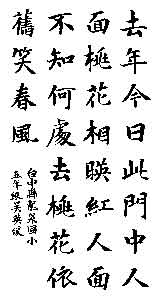 去年今日此門中人
面桃花相暎紅人面
不知何處去桃花依
舊笑春風
台中縣龍泉國小
五年級